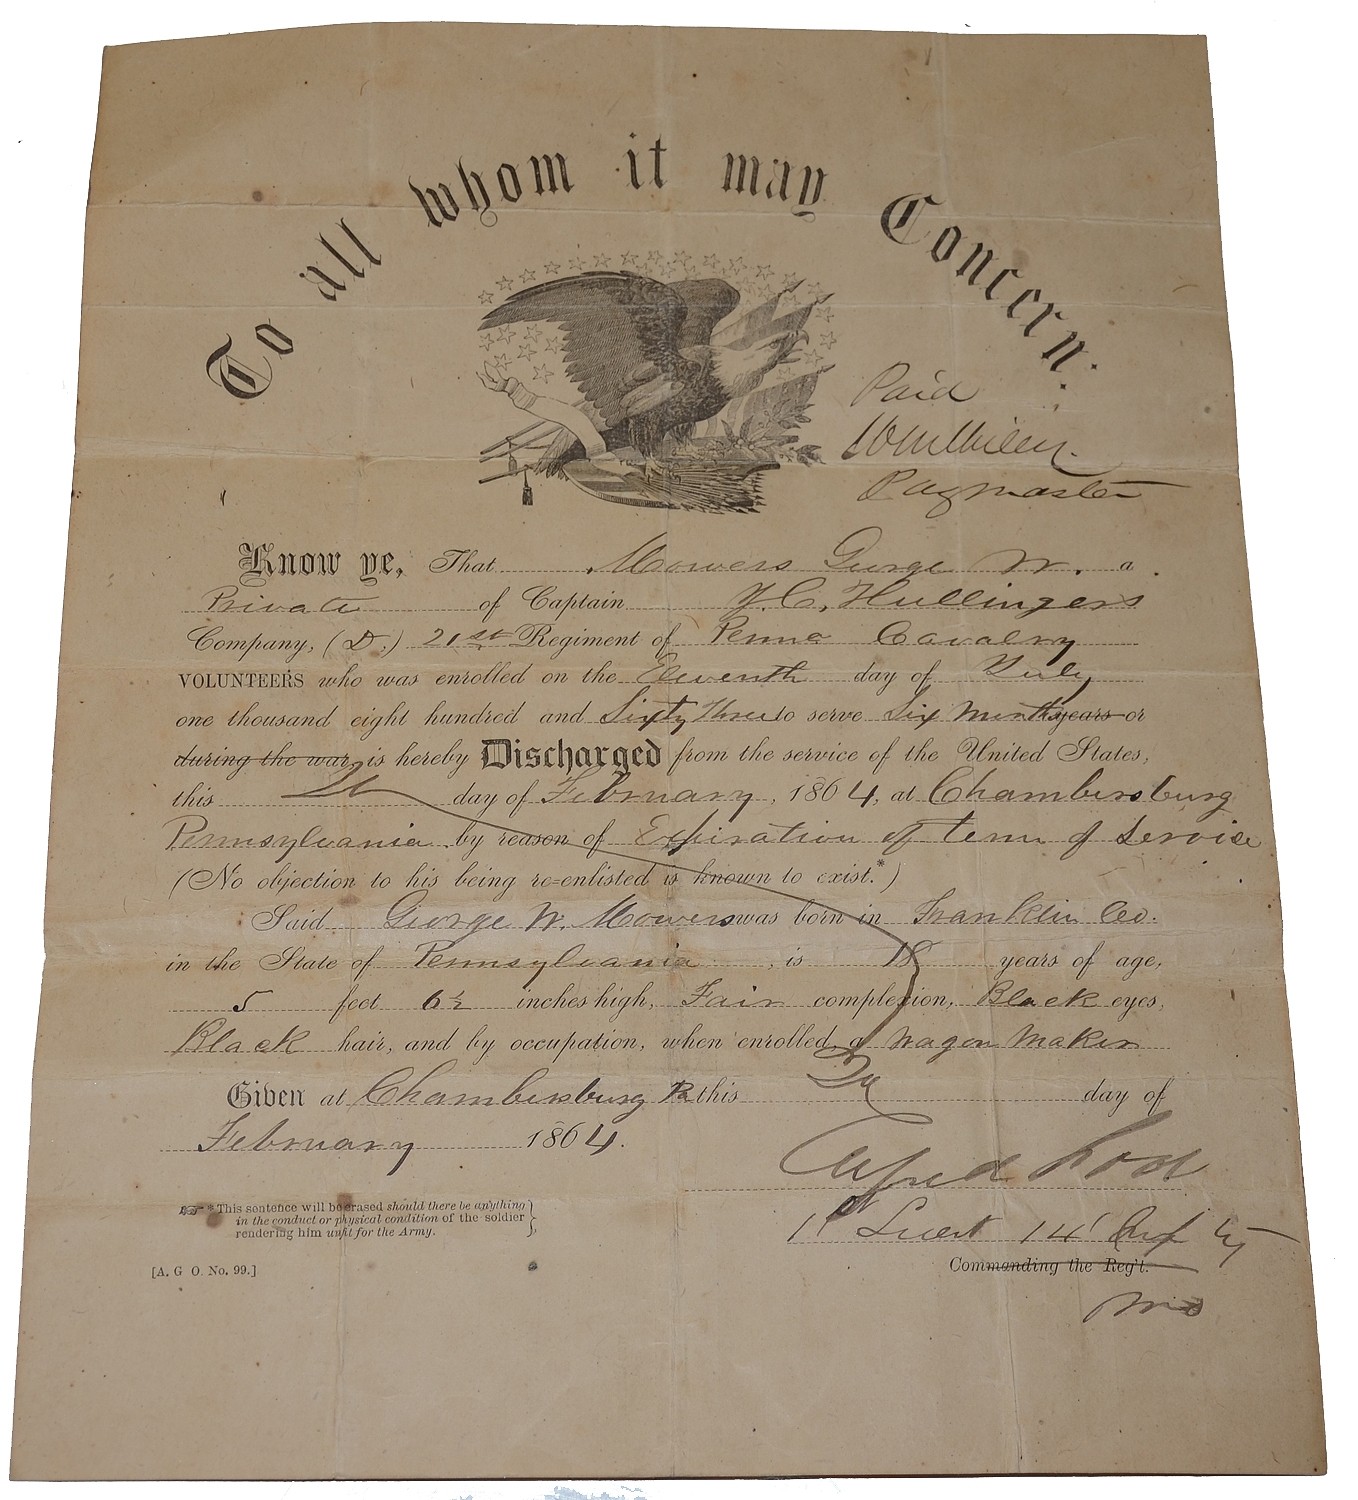 To all whom it may Concern:
Paid
Paymaster
Know ye, That Mowers George W. a
Private of Captain Hullingers
Company, (D,) 21st Regiment of Penna Cavalry
VOLUNTEERS who was enrolled on the Eleventh day of July
one thousand eight hundred and Sixty Three to serve Six Months years or
during the war, is hereby Discharged from the service of the United States,
this day of February, 1864, at Chambersburg
Pennsylvania by reason of Expiration of term of Service
(No objection to his being re-enlisted is known to exist.*)
Said George W. Mowers was born in Franklin Co.
in the State of Pennsylvania, is 18 years of age,
5 feet 6½ inches high, Fair complexion, Black eyes,
Black hair, and by occupation, when enrolled, a Wagon Maker
Given at Chambersburg Pa this day of
February 1864.
Alfred
1st Lieut 14 Inf
Commanding the Reg't.
☞ *This sentence will be erased should there be anything
in the conduct or physical condition of the soldier
rendering him unfit for the Army.
[A. G O. No. 99.]